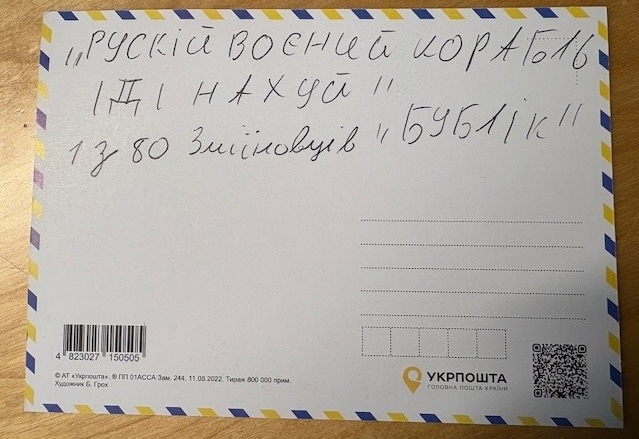 „РУСКІЙ ВОЄНИЙ КОРАБЛЬ
ІДІ НАХУЙ"
1 з 80 Зміїновців „БУБЛІК"
4 823027 150505
© АТ «Укрпошта». ® ПП 01АССА Зам. 244. 11.05.2022. Тираж 800 000 прим.
Художник Б. Грох
УКРПОШТА
ГОЛОВНА ПОШТА КРАЇНИ